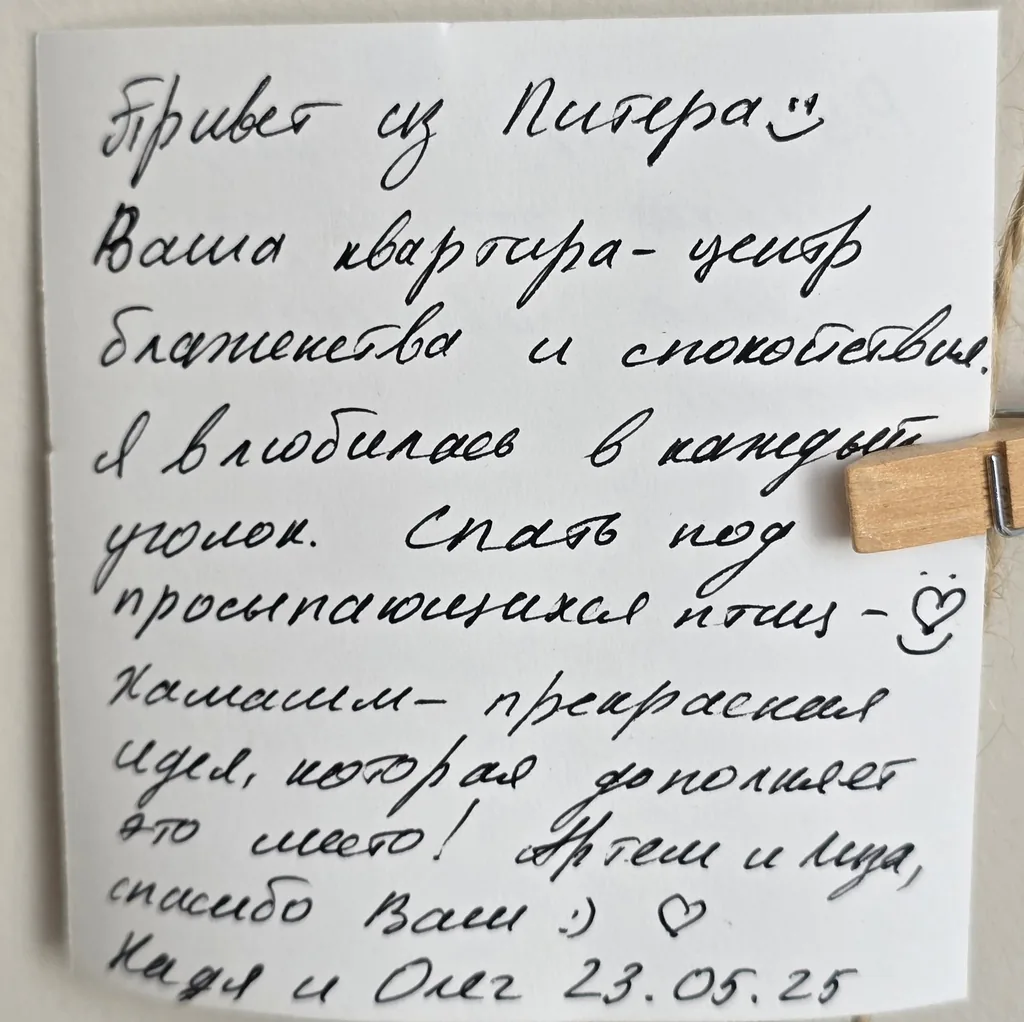 Привет из Питера
Ваша квартира - центр
блаженства и спокойствия.
Я влюбилась в каждый
уголок. Спать под
просыпающихся птиц -
Хамашм - прекрасная
идея, которая дополняет
это место! Артем и Лиза,
спасибо Вам :) ♡
Надя и Олег 23.05.25